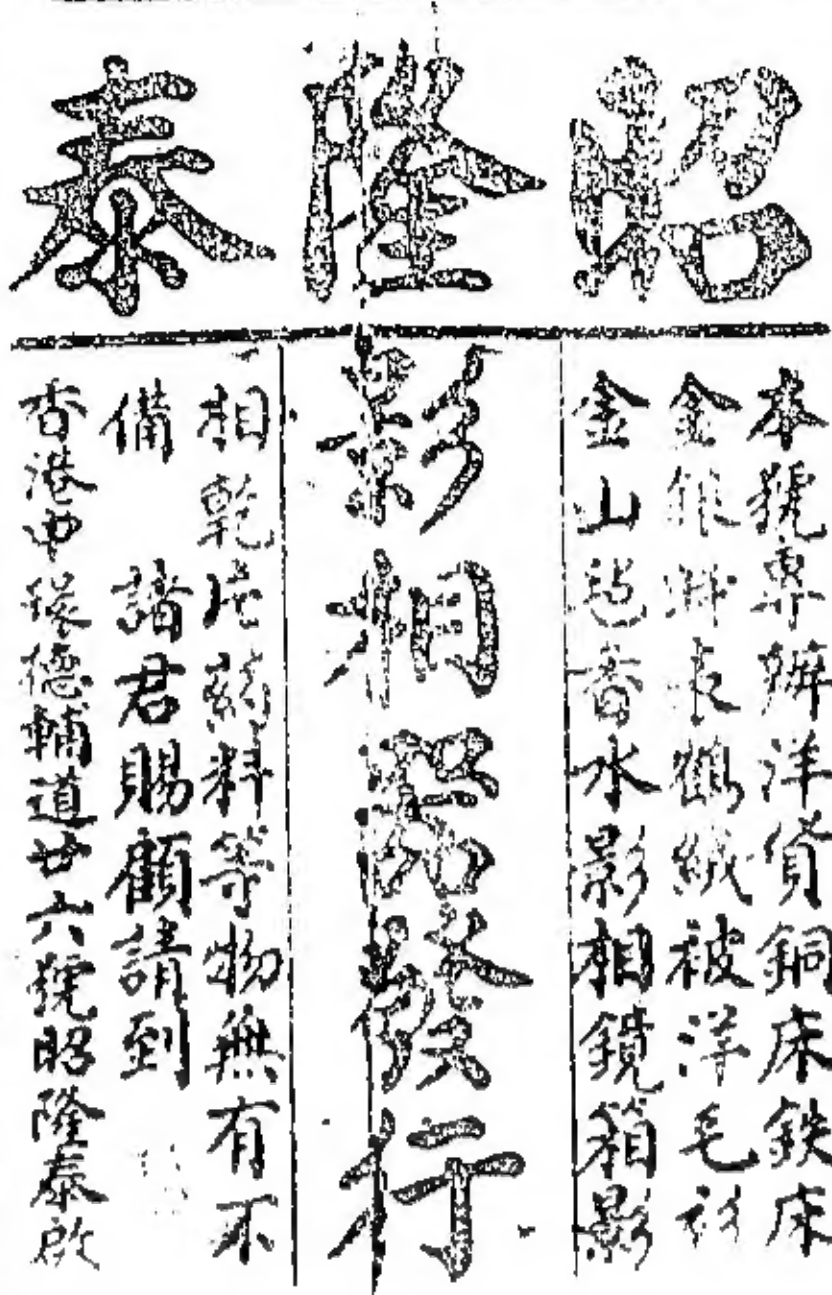 昭隆泰
本號專辦洋貨銅床鉄床
金銀時表鶴絨被洋毛衫
金山毡香水影相鏡箱影
影相照發行
相乾片葯料等物無有不
備 諸君賜顧請到
香港中環德輔道廿六號昭隆泰啟